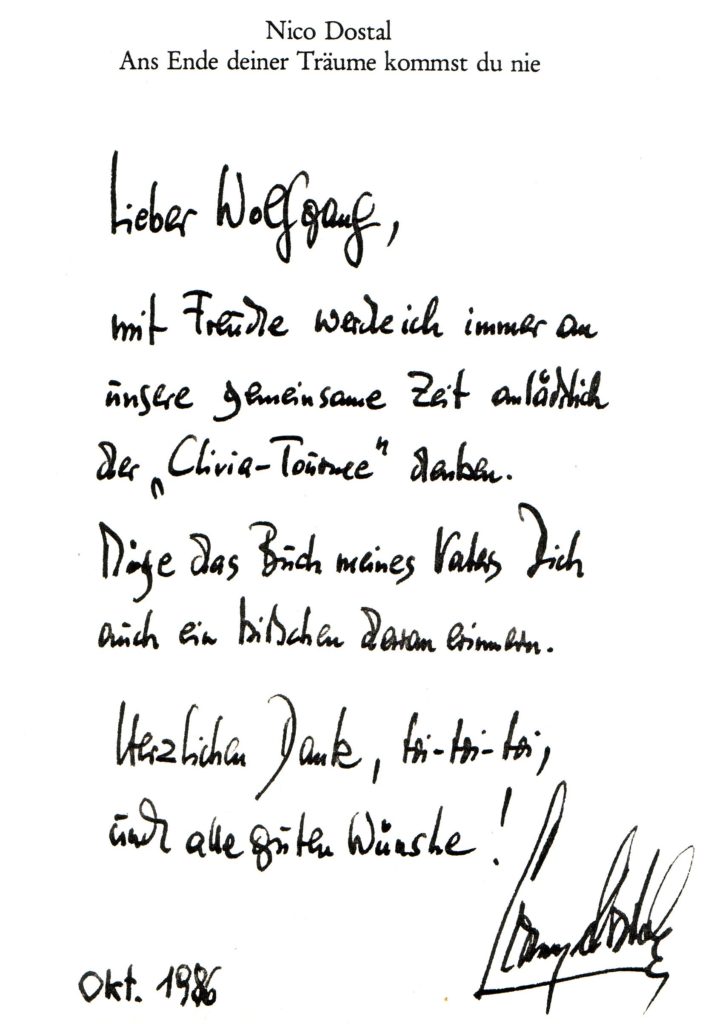 Nico Dostal
Ans Ende deiner Träume kommst du nie
Lieber Wolfgang,
mit Freude werde ich immer an
unsere gemeinsame Zeit anläßlich
der „Clivia-Tournee" denken.
Möge das Buch meines Vaters Dich
auch ein bißchen daran erinnern.
Herzlichen Dank, toi-toi-toi,
und alle guten Wünsche!
Okt. 1986